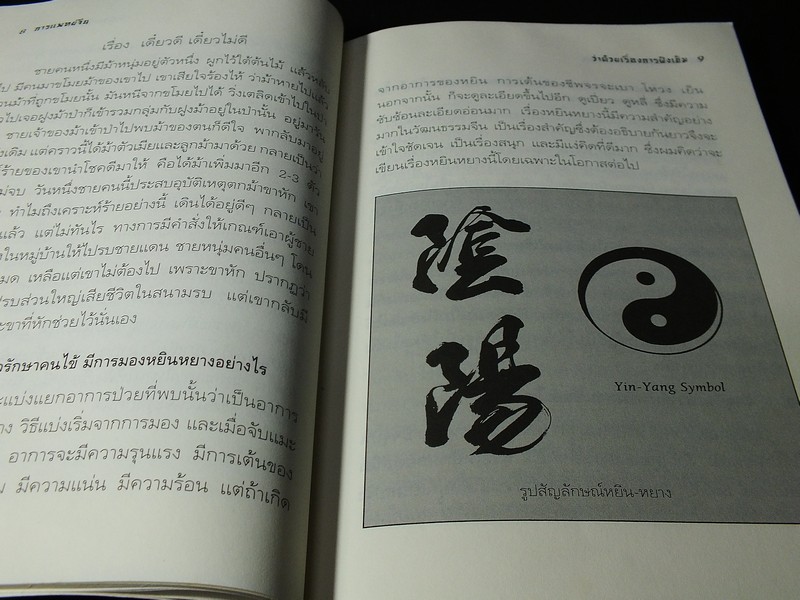 ๘ การแพทย์จีน
เรื่อง เดี๋ยวดี เดี๋ยวไม่ดี
ชายคนหนึ่งมีม้าหนุ่มอยู่ตัวหนึ่ง ผูกไว้ใต้ต้นไม้ แล้วหลับ
ไป มีคนมาขโมยม้าของเขาไป เขาเสียใจร้องไห้ ว่าม้าหายไปแล้ว
ม้าที่ถูกขโมยนั้น มันหนีจากขโมยไปได้ วิ่งเตลิดเข้าไปในป่า
ไปเจอฝูงม้าป่าก็เข้ารวมกลุ่มกับฝูงม้าอยู่ในป่านั้น อยู่มาวัน
ชายเจ้าของม้าเข้าป่าไปพบม้าของตนก็ดีใจ พากลับมาอยู่
เดิม แต่คราวนี้ได้ม้าตัวเมียและลูกม้ามาด้วย กลายเป็นว่า
ร้ายของเขานำโชคดีมาให้ คือได้ม้าเพิ่มมาอีก 2-3 ตัว
จบ วันหนึ่งชายคนนี้ประสบอุบัติเหตุตกม้าขาหัก เขา
ทำไมถึงเคราะห์ร้ายอย่างนี้ เดินได้อยู่ดีๆ กลายเป็น
แล้ว แต่ไม่ทันไร ทางการมีคำสั่งให้เกณฑ์เอาผู้ชาย
ในหมู่บ้านให้ไปรบชายแดน ชายหนุ่มคนอื่นๆ โดน
หมด เหลือแต่เขาไม่ต้องไป เพราะขาหัก ปรากฏว่า
รบส่วนใหญ่เสียชีวิตในสนามรบ แต่เขากลับมี
ขาที่หักช่วยไว้นั่นเอง
รักษาคนไข้ มีการมองหยินหยางอย่างไร
จะแบ่งแยกอาการป่วยที่พบนั้นว่าเป็นอาการ
วิธีแบ่งเริ่มจากการมอง และเมื่อจับแมะ
อาการจะมีความรุนแรง มีการเต้นของ
มีความแน่น มีความร้อน แต่ถ้าเกิด
ว่าด้วยเรื่องการฝังเข็ม ๙
จากอาการของหยิน การเต้นของชีพจรจะเบา โหวง เย็น
นอกจากนั้น ก็จะดูละเอียดขึ้นไปอีก ดูเปี่ยว ดูหลี่ ซึ่งมีความ
ซับซ้อนละเอียดอ่อนมาก เรื่องหยินหยางนี้มีความสำคัญอย่าง
มากในวัฒนธรรมจีน เป็นเรื่องสำคัญซึ่งต้องอธิบายกันยาวจึงจะ
เข้าใจชัดเจน เป็นเรื่องสนุก และมีแง่คิดที่ดีมาก ซึ่งผมคิดว่าจะ
เขียนเรื่องหยินหยางนี้โดยเฉพาะในโอกาสต่อไป
陰
陽
Yin-Yang Symbol
รูปสัญลักษณ์หยิน-หยาง